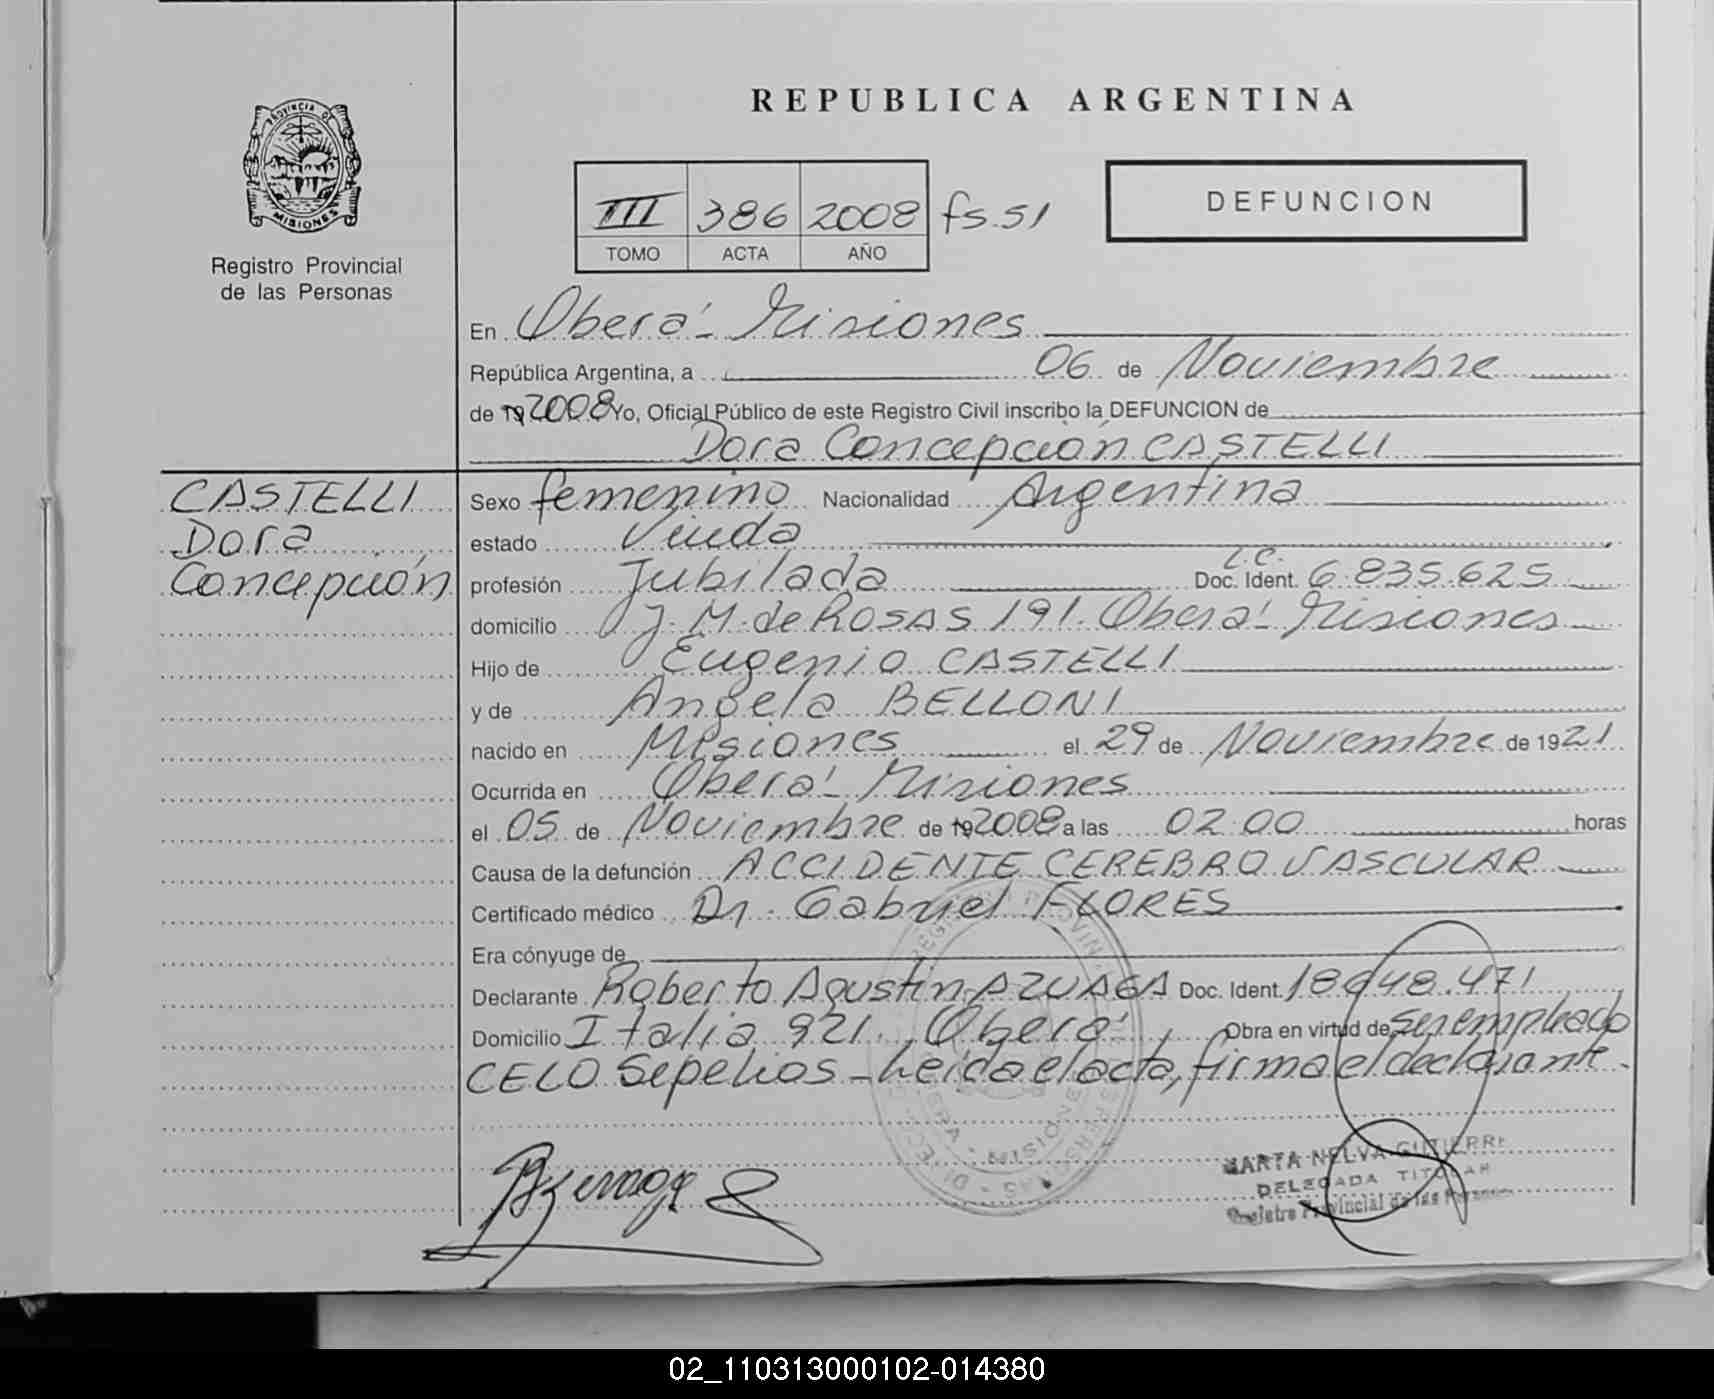 REPUBLICA ARGENTINA
PROVINCIA DE
MISIONES
Registro Provincial
de las Personas
III 386 2008 fs. 51
TOMO ACTA AÑO
DEFUNCION
En Oberá - Misiones
República Argentina, a 06 de Noviembre
de 19 2008 Yo, Oficial Público de este Registro Civil inscribo la DEFUNCION de
Dora Concepción CASTELLI
CASTELLI
Dora
Concepción
Sexo femenino Nacionalidad Argentina
estado Viuda
profesión Jubilada Doc. Ident. L.C. 6.835.625
domicilio J. M. de ROSAS 191. Oberá - Misiones
Hijo de Eugenio CASTELLI
y de Angela BELLONI
nacido en Misiones el 29 de Noviembre de 1921
Ocurrida en Oberá - Misiones
el 05 de Noviembre de 19 2008 a las 02.00 horas
Causa de la defunción ACCIDENTE CEREBRO VASCULAR
Certificado médico Dr. Gabriel FLORES
Era cónyuge de
Declarante Roberto Agustín AZUAGA Doc. Ident. 18.948.471
Domicilio Italia 921. Oberá Obra en virtud de ser empleado
CELO Sepelios - Leída el acta, firma el declarante.
MARTA NELVA GUTIERRE
DELEGADA TITULAR
Registro Provincial de las Personas
02_110313000102-014380